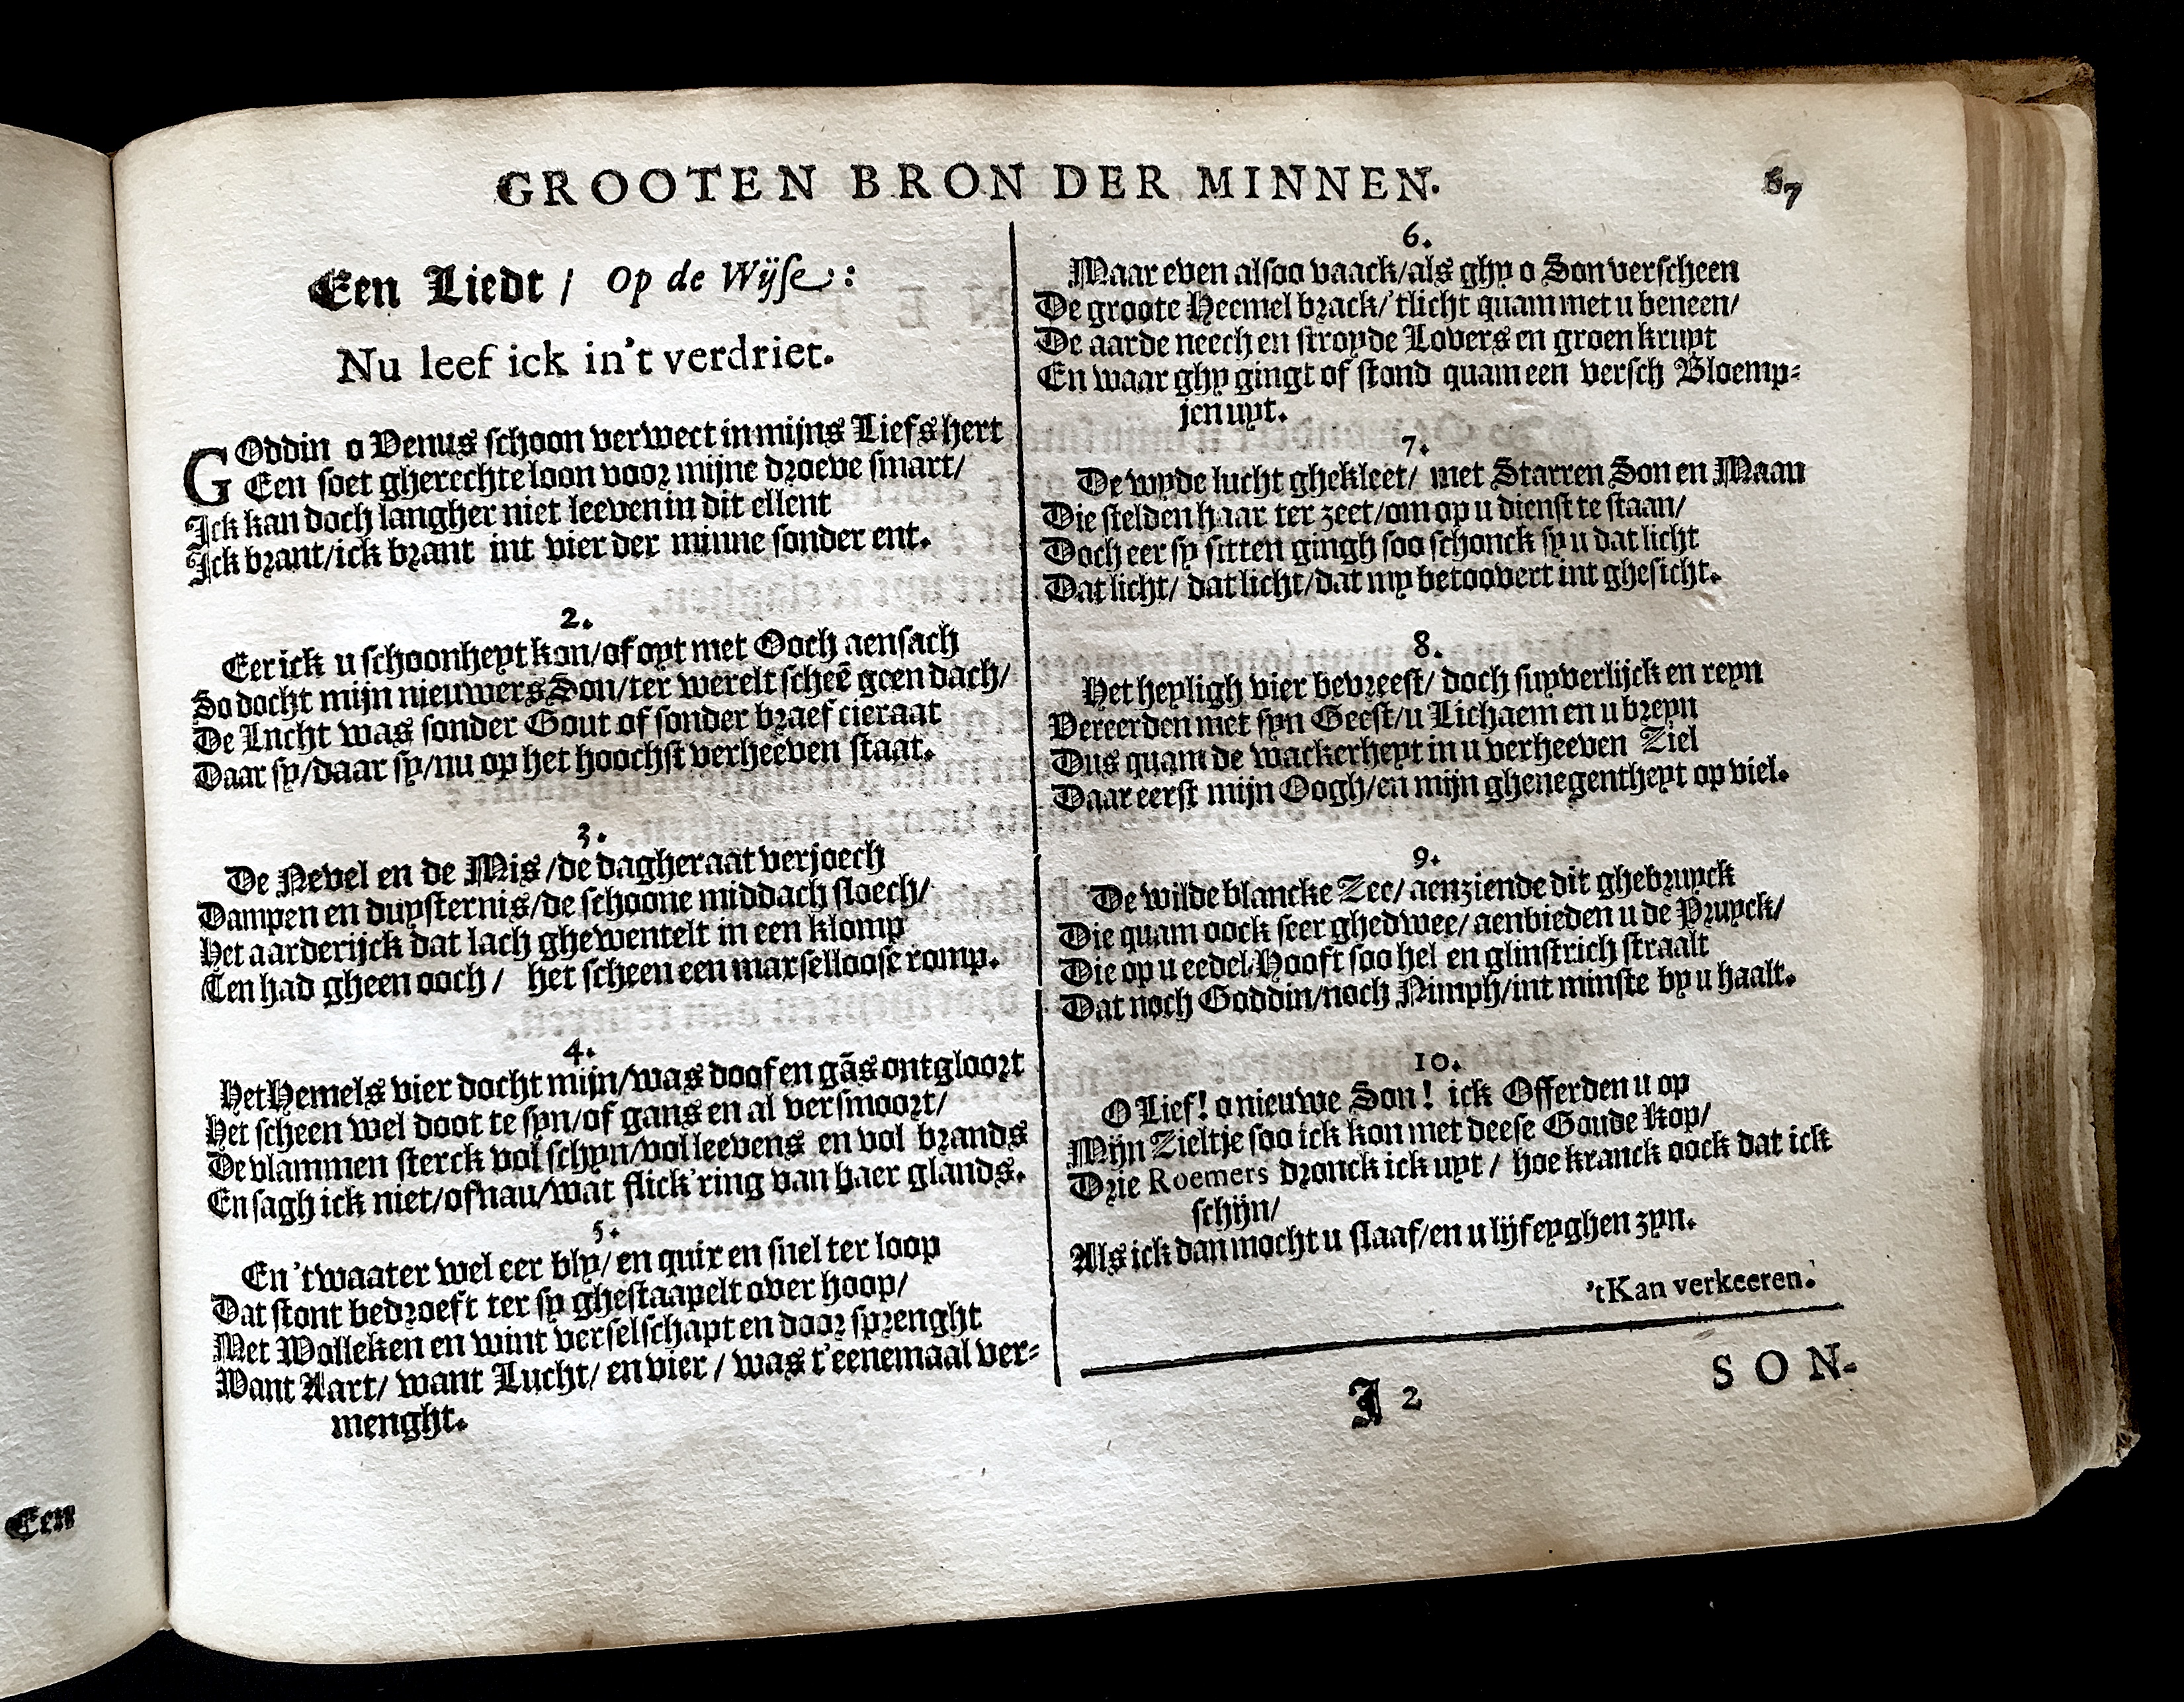 GROOTEN BRON DER MINNEN.
67
Een Liedt / Op de Wijse:
Nu leef ick in't verdriet.
GOddin o Venus schoon verwect in mijns Liefs hert
Een soet gherechte loon voor mijne droeve smart/
Ick kan doch langher niet leeven in dit ellent
Ick brant/ick brant int vier der minne sonder ent.
2.
Eer ick u schoonheyt kon/of oyt met Ooch aensach
So docht mijn nieuwers Son/ter werelt scheẽ geen dach/
De Lucht was sonder Gout of sonder braef cieraat
Daar sy/daar sy/nu op het hoochst verheeven staat.
3.
De Nevel en de Mis/de dagheraat verjoech
Dampen en duysternis/de schoone middach sloech/
Het aarderijck dat lach ghewentelt in een klomp
Ten had gheen ooch/ het scheen een marselloose romp.
4.
Het Hemels vier docht mijn/was doof en gãs ontgloort
Het scheen wel doot te syn/of gans en al versmoort/
De vlammen sterck vol schyn/vol leevens en vol brands
En sagh ick niet/of nau/wat flick'ring van haer glands.
5.
En 't waater wel eer bly/en quix en snel ter loop
Dat stont bedroeft ter sy ghestaapelt over hoop/
Met Wolleken en wint verselschapt en door sprenght
Want Aart/want Lucht/en vier/was t'eenemaal ver-
menght.
6.
Maar even alsoo vaack/als ghy o Son verscheen
De groote Heemel brack/'tlicht quam met u beneen/
De aarde neech en stroyde Lovers en groen kruyt
En waar ghy gingt of stond quam een versch Bloemp-
jen uyt.
7.
De wyde lucht ghekleet/ met Starren Son en Maan
Die stelden haar ter zeet/om op u dienst te staan/
Doch eer sy sitten gingh soo schonck sy u dat licht
Dat licht/ dat licht/dat my betoovert int ghesicht.
8.
Het heyligh vier bevreest/ doch suyverlijck en reyn
Vereerden met syn Geest/u Lichaem en u breyn
Dus quam de wackerheyt in u verheeven Ziel
Daar eerst mijn Oogh/en mijn ghenegentheyt op viel.
9.
De wilde blancke Zee/ aenziende dit ghebruyck
Die quam oock seer ghedwee/aenbieden u de Pruyck/
Die op u eedel Hooft soo hel en glinstrich straalt
Dat noch Goddin/noch Nimph/int minste by u haalt.
10.
O Lief! o nieuwe Son! ick Offerden u op
Mijn Zieltje soo ick kon met deese Goude kop/
Drie Roemers dronck ick uyt / hoe kranck oock dat ick
schijn/
Als ick dan mocht u slaaf/en u lijfeyghen zyn.
'tKan verkeeren.
I 2
SON-
Een